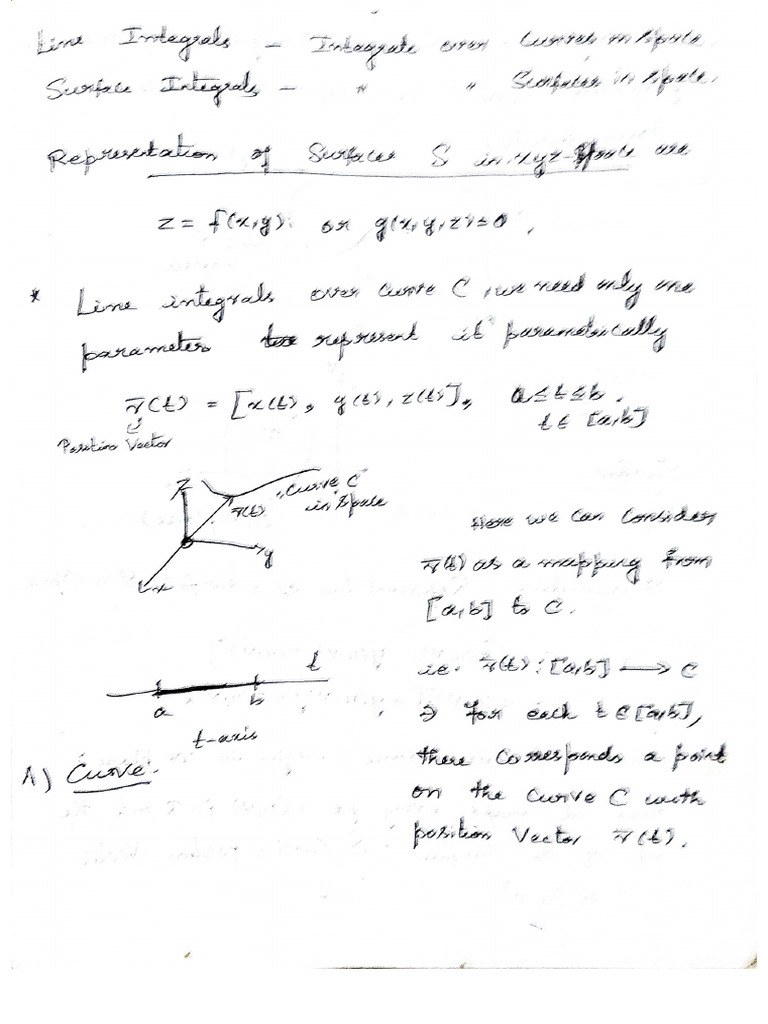 Line Integrals - Integrate over Curves in Space.
Surface Integrals - " " Surfaces in Space.
Representation of Surfaces S in xyz-Space are
z = f(x,y) or g(x,y,z)=0,
* Line integrals over curve C, we need only one
parameter to represent it parametrically
r̄(t) = [x(t), y(t), z(t)], a≤t≤b.
t ∈ [a,b]
Position Vector
z
r̄(t)
Curve C
in Space
y
x
Here we can consider
r̄(t) as a mapping from
[a,b] to C.
t
a b
t-axis
A) Curve.
ie. r̄(t) : [a,b] → C
⇒ For each t ∈ [a,b],
there corresponds a point
on the curve C with
position Vector r̄(t).